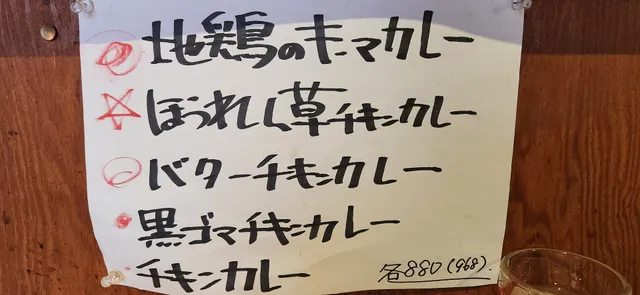 地鶏のキーマカレー
ほうれん草チキンカレー
バターチキンカレー
黒ゴマチキンカレー
チキンカレー
各880(968)